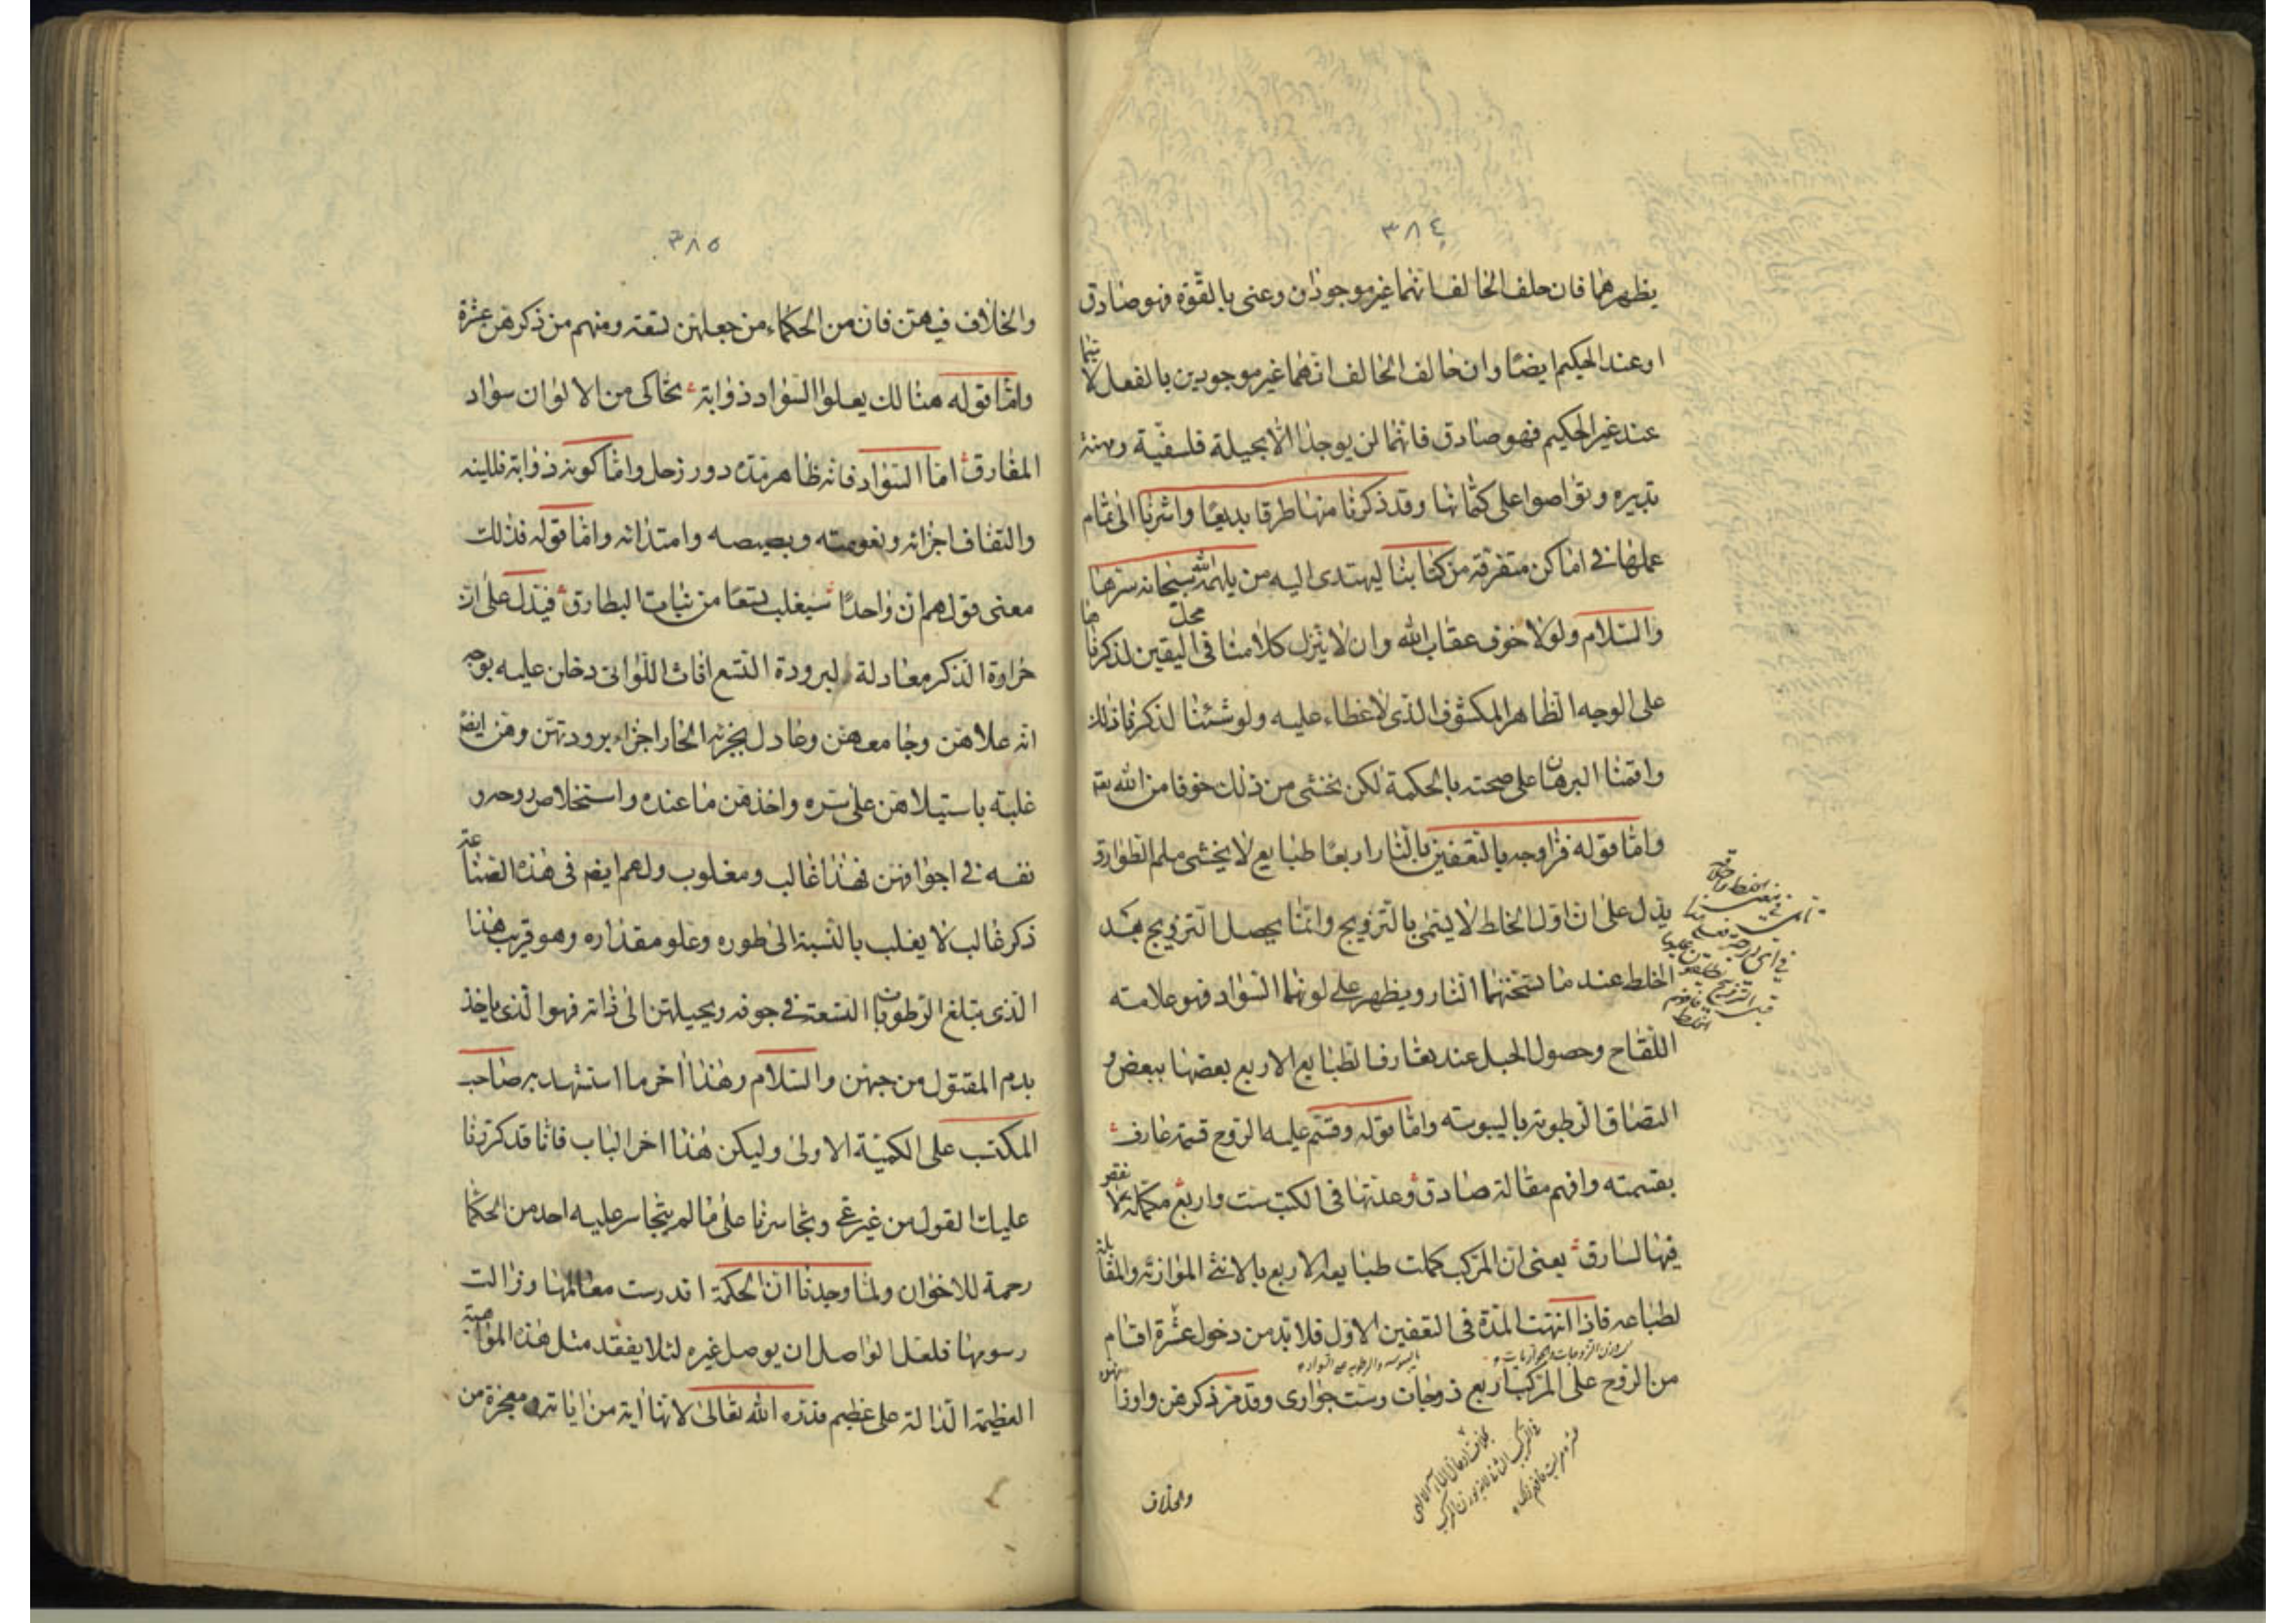 ٣٨٤
يظهرهما فان حلف الحالف انهما غير موجودان وعنى بالقوة فهو صادق
او عند الحكيم ايضا وان حالف الحالف انهما غير موجودين بالفعل لا سيما
عند غير الحكيم فهو صادق فانهما لن يوجدا الا بحيلة فلسفية ومهنة
تدبيره وتواصوا على كتمانها وقد ذكرنا منها طرقا بديعا واشرنا الى تمام
عملها في اماكن متفرقة من كتابنا ليهتدى اليه من يلهمه الله سبحانه سرها
والسلام ولولا خوف عقاب الله وان لا ينزل كلامنا في محل اليقين لذكرناها
على الوجه الظاهر المكشوف الذى لا غطاء عليه ولو شئنا لذكرنا ذلك
واقمنا البرهان على صحته بالحكمة لكن نخشى من ذلك خوفا من الله تع
واما قوله فزاوجه بالتعفين بالنار اربعا طبايع لا يخشى ملم الطوارق
يدل على ان اول الخلط لا يسمى بالتزويج وانما يحصل التزويج بعد
الخلط عند ما تسخنهما النار ويظهر على لونهما السواد فهو علامته
اللقاح وحصول الحبل عند تعارف الطبايع الاربع بعضها ببعض و
التصاق الرطوبة باليبوسته واما قوله وقسم عليه الروح قسمة عارف
بقسمته وافهم مقالة صادق وعدتها في الكتب ست واربع مكملة لا نقص
فيها لسارق يعنى ان المركب كملت طبايعه الاربع بالانثى الموازنة والمقابلة
لطباعه فاذا انتهت المدة في التعفين الاول فلا بد من دخول عشرة اقسام
من الروح على المركب اربع زوجات وست جوارى وقد مر ذكرهن واوزانهن
والخلاف
٣٨٥
والخلاف فيهن فان من الحكماء من جعلهن تسعة ومنهم من ذكرهن عشرة
واما قوله هنالك يعلوا السواد ذوابة تحاكى من الالوان سواد
المفارق اما السواد فانه ظاهر مدة دور زحل واما كونه ذوابة فللينه
والتفاف اجزائه ونعومته وبصيصه وامتداده واما قوله فذلك
معنى قولهم ان واحدا سيغلب تسعا من بنات البطارق فيدل على ان
حراوة الذكر معادلة لبرودة التسع اناث اللواتى دخلن عليه بوجه
انه علاهن وجامعهن وعادل بجزئه الحار اجزاء برودتهن وهن ايضا
غلبته باستيلاهن على سره واخذهن ما عنده واستخلاص روحه و
نفسه في اجوافهن فهذا غالب ومغلوب ولهم ايضا في هذه الصناعة
ذكر غالب لا يغلب بالنسبة الى طوره وعلو مقداره وهو قريب هذا
الذى تبلغ الرطوبات التسعة في جوفه ويحيلهن الى ذاته فهو الذى ياخذ
بدم المقتول من جهتن والسلام وهذا أخر ما استشهد به صاحب
المكتسب على الكمية الاولى وليكن هذا اخر الباب فاننا قد كررنا
عليك القول من غير عى وتجاسرنا على ما لم يتجاسر عليه احد من الحكما
رحمة للاخوان ولما وجدنا ان الحكمة اقد رست معالمها وزالت
رسومها فلعل الواصل ان يوصل غيره لئلا يفقد مثل هذه المواهبة
العظيمة الدالة على عظيم قدره الله تعالى لانها اية من اياته ومعجزة من